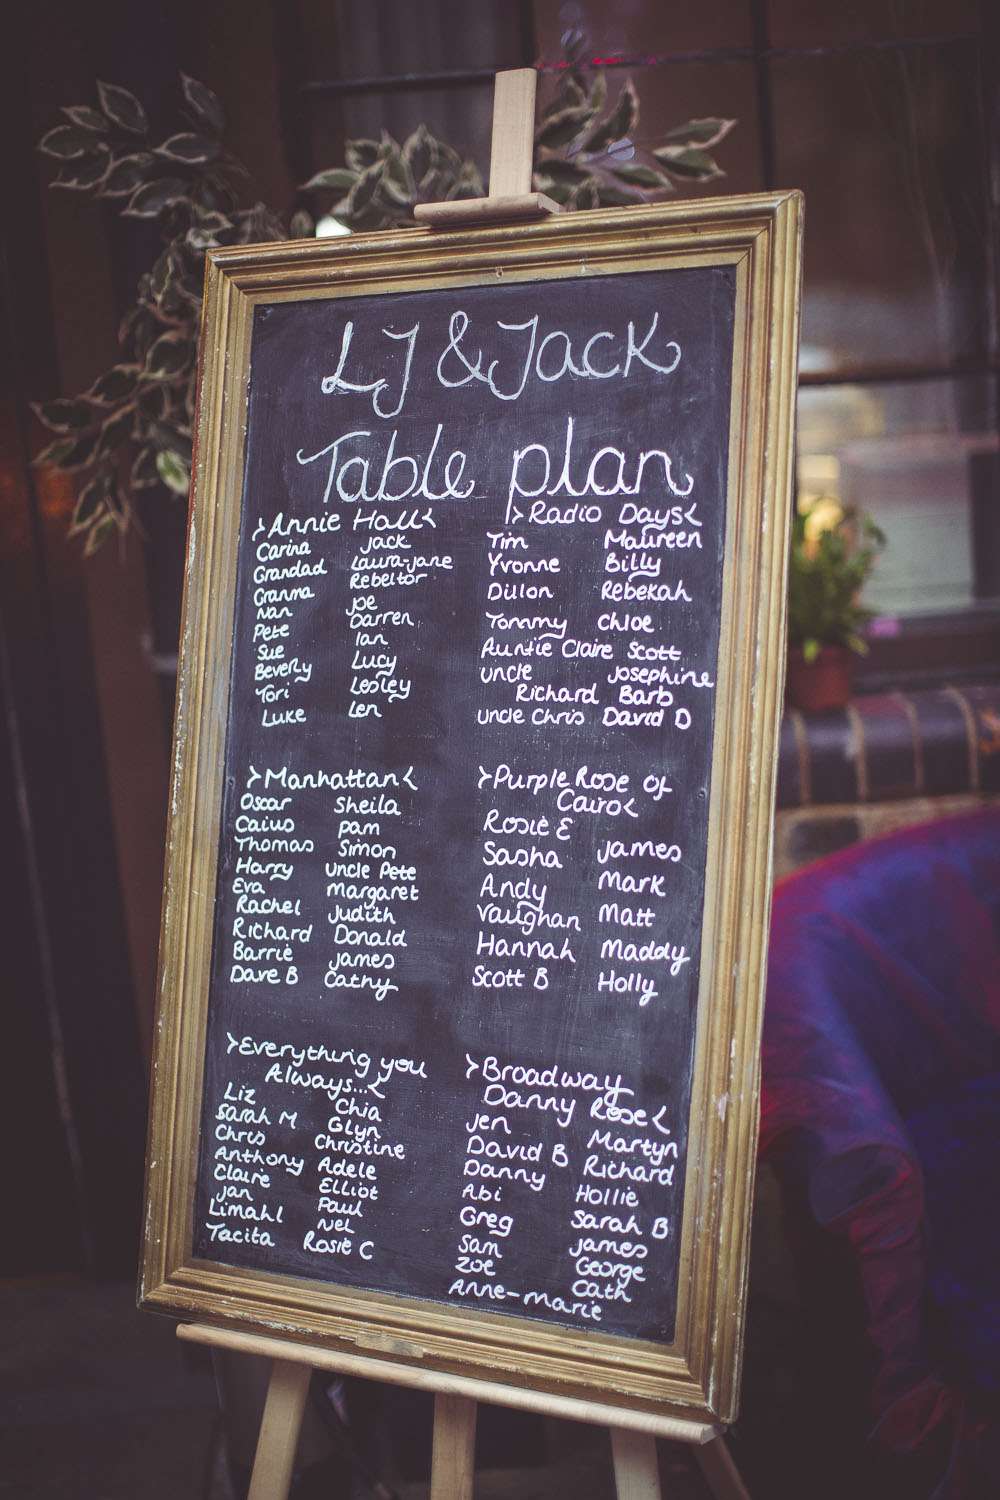 LJ & Jack
Table plan
>Annie Hall<
Carina
Grandad
Granma
Nan
Pete
Sue
Beverly
Tori
Luke
Jack
Laura-Jane
Rebeltor
Joe
Darren
Ian
Lucy
Lesley
Len
>Radio Days<
Tim
Yvonne
Dillon
Tommy
Auntie Claire
Uncle
Richard
Uncle Chris
Maureen
Billy
Rebekah
Chloe
Scott
Josephine
Barb
David D
>Manhattan<
Oscar
Caius
Thomas
Harry
Eva
Rachel
Richard
Barrie
Dave B
Sheila
Pam
Simon
Uncle Pete
Margaret
Judith
Donald
James
Cathy
>Purple Rose of
Cairo<
Rosie E
Sasha
Andy
Vaughan
Hannah
Scott B
James
Mark
Matt
Maddy
Holly
>Everything you
Always...<
Liz
Sarah M
Chris
Anthony
Claire
Jan
Limahl
Tacita
Chia
Glyn
Christine
Adele
Elliot
Paul
Nel
Rosie C
>Broadway
Danny Rose<
Jen
David B
Danny
Abi
Greg
Sam
Zoe
Anne-Marie
Martyn
Richard
Hollie
Sarah B
James
George
Cath